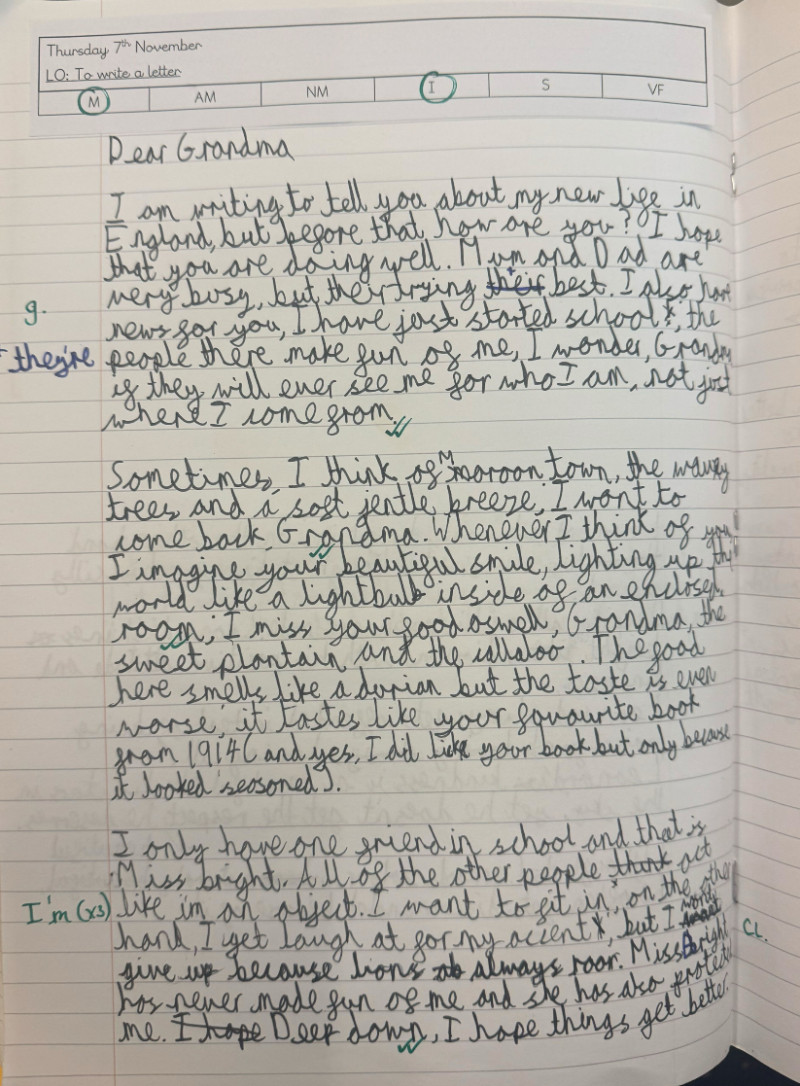 Thursday 7th November
LO: To write a letter
M AM NM I S VF
Dear Grandma
I am writing to tell you about my new life in
England, but before that how are you? I hope
that you are doing well. Mum and Dad are
very busy, but their trying their best. I also have
g.
news for you, I have just started school, the
they're
people there make fun of me, I wonder, Grandma
if they will ever see me for who I am, not just
where I come from.
Sometimes, I think of Maroon town, the wavey
trees and a soft jentle breeze, I want to
come back, Grandma. Whenever I think of you
I imagine your beautiful smile, lighting up the
world like a lightbulb inside of an enclosed
room; I miss your food aswell, Grandma, the
sweet plantain and the callaloo. The food
here smells like a durian but the taste is even
worse, it tastes like your favourite book
from 1914 (and yes, I did lick your book but only because
it looked seasoned).
I only have one friend in school and that is
Miss bright. All of the other people think act
I'm (x3)
like im an object. I want to fit in, on the other
hand, I get laugh at for my accent, but I wont
CL.
give up because lions always roar. Miss Bright
has never made fun of me and she has also protected
me. I hope Deep down, I hope things get better.